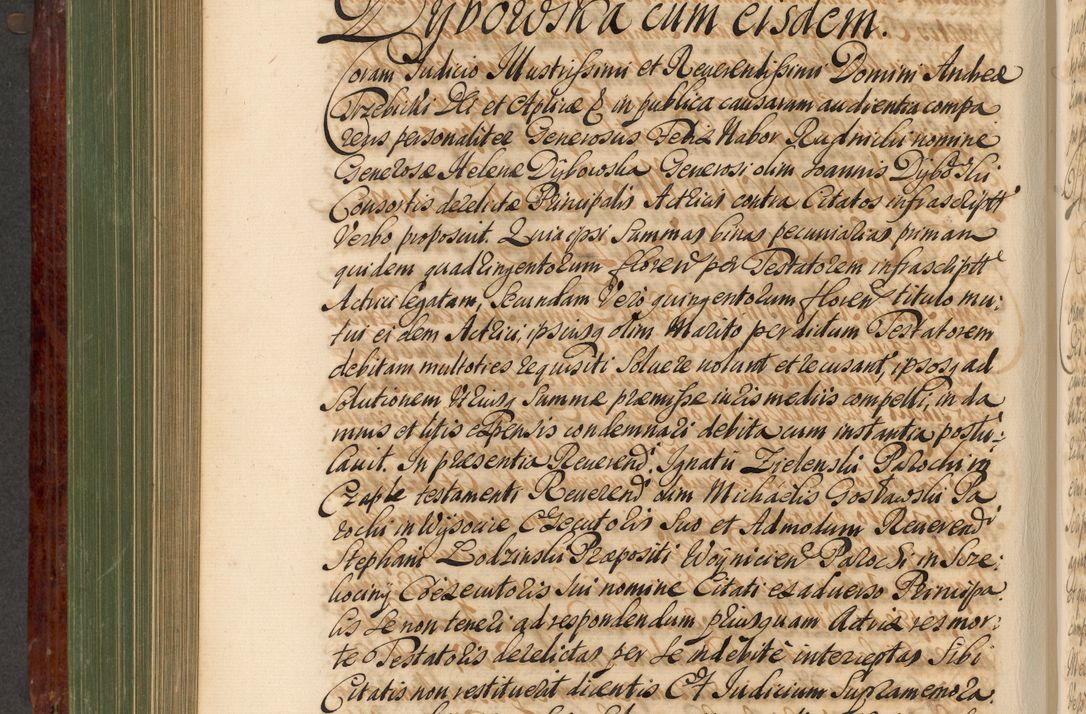 Dybowska cum eisdem.
Coram Judicio Illustrissimi et Reverendissimi Domini Andreæ
Trzebicki Dei et Aplicæ & in publica causarum audientia compa
rens personaliter Generosus Felix Nabor Rudnicki nomine
Generosæ Helenæ Dybowska Generosi olim Joannis Dybowski
Consortis derelictæ Principalis Actricis contra Citatos infrascriptt
Verbo proposuit. Quia ipsi Summas binas pecuniarias primam
quidem quadringentorum floren per Testatorem infrascriptt
Actrici legatam, Secundam Vero quingentorum floren titulo mu:
tui eidem Actrici, ipsiusq olim Marito per dictum Testatorem
debitam multoties requisiti Solvere nolunt et recusant, ipsosq ad
Solutionem utriusq Summæ præmissæ iuris mediis compelli, in da
mnis et litis expensis condemnari debita cum instantia postu:
lavit. In præsentia Reverend Ignatii Zielenski Parochi in
Czaple testamenti Reverend olim Michaelis Gostawski Pa
rochi in Wysocie Executoris Suo et Admodum Reverend
Stephani Lodzinski Præpositi Woynicien Parochi in Szre:
kociny Coexecutoris Sui nomine Citati ex adverso Principa
lis se non teneri ad respondendum priusquam Actrix res mor:
te Testatoris derelictas per se indebitè interceptas Sibi
Citatis non restituerit dicentis Et Judicium Supramemora